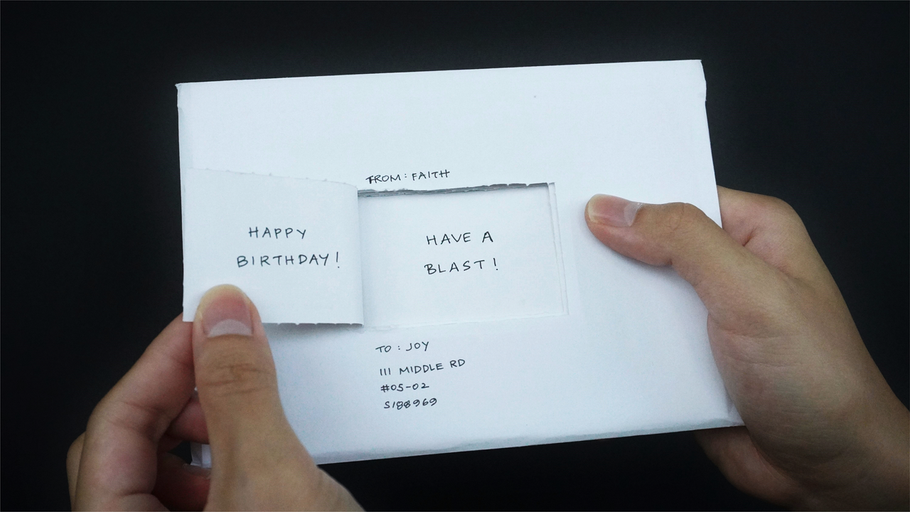 FROM : FAITH
HAPPY
BIRTHDAY!
HAVE A
BLAST!
TO : JOY
111 MIDDLE RD
#05-02
S188969